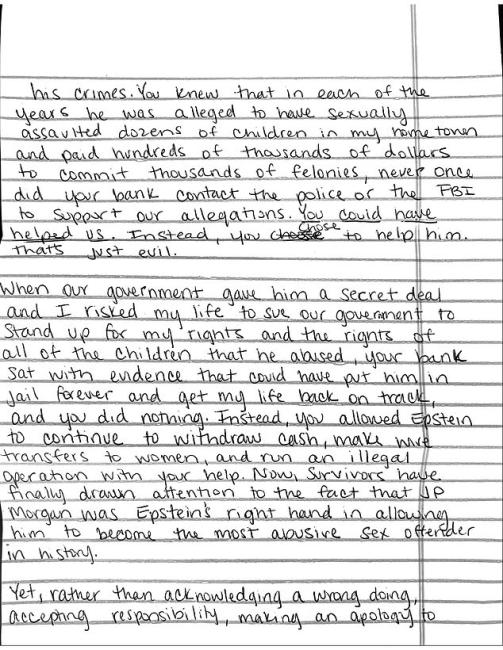 his crimes. You knew that in each of the
years he was alleged to have sexually
assaulted dozens of children in my hometown
and paid hundreds of thousands of dollars
to commit thousands of felonies, never once
did your bank contact the police or the FBI
to support our allegations. You could have
helped us. Instead, you chose to help him.
that's just evil.
When our government gave him a secret deal
and I risked my life to sue our government to
stand up for my rights and the rights of
all of the children that he abused, your bank
sat with evidence that could have put him in
jail forever and get my life back on track,
and you did nothing. Instead, you allowed Epstein
to continue to withdraw cash, make wire
transfers to women, and run an illegal
operation with your help. Now, survivors have
finally drawn attention to the fact that JP
Morgan was Epstein's right hand in allowing
him to become the most abusive sex offender
in history.
Yet, rather than acknowledging a wrong doing,
accepting responsibility, making an apology to